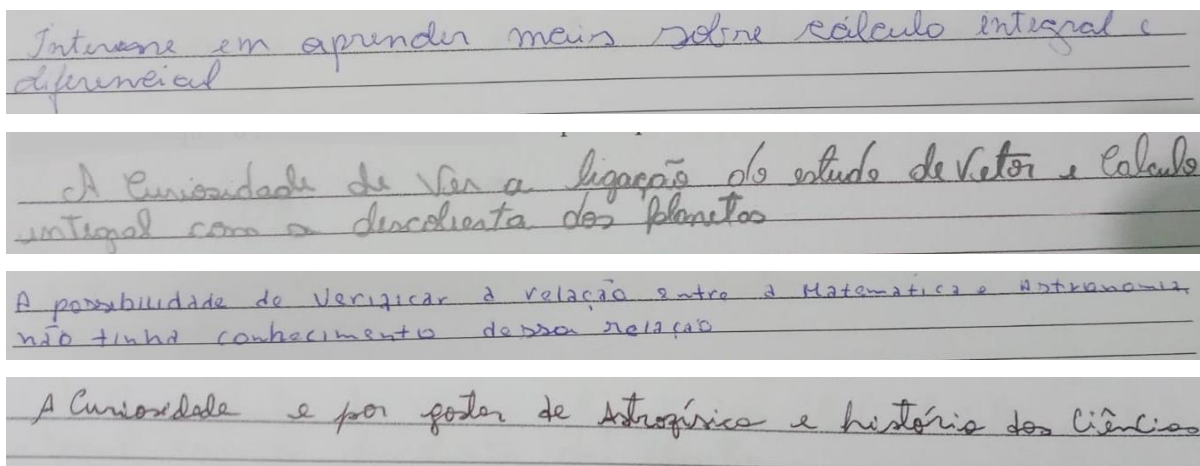 Interesse em aprender mais sobre cálculo integral e
diferencial
A Curiosidade de Ver a ligação do estudo de Vetor e Calculo
integral com a descoberta dos planetas
A possibilidade de Verificar a relação entre a Matemática e Astronomia,
não tinha conhecimento dessa relação
A Curiosidade e por gostar de Astrofísica e história das Ciências